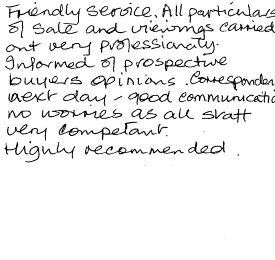 Friendly service. All particulars
of sale and viewings carried
out very professionaly.
Informed of prospective
buyers opinions. Corresponden
next day - good communicatio
no worries as all staff
very competant.
Highly recommended.